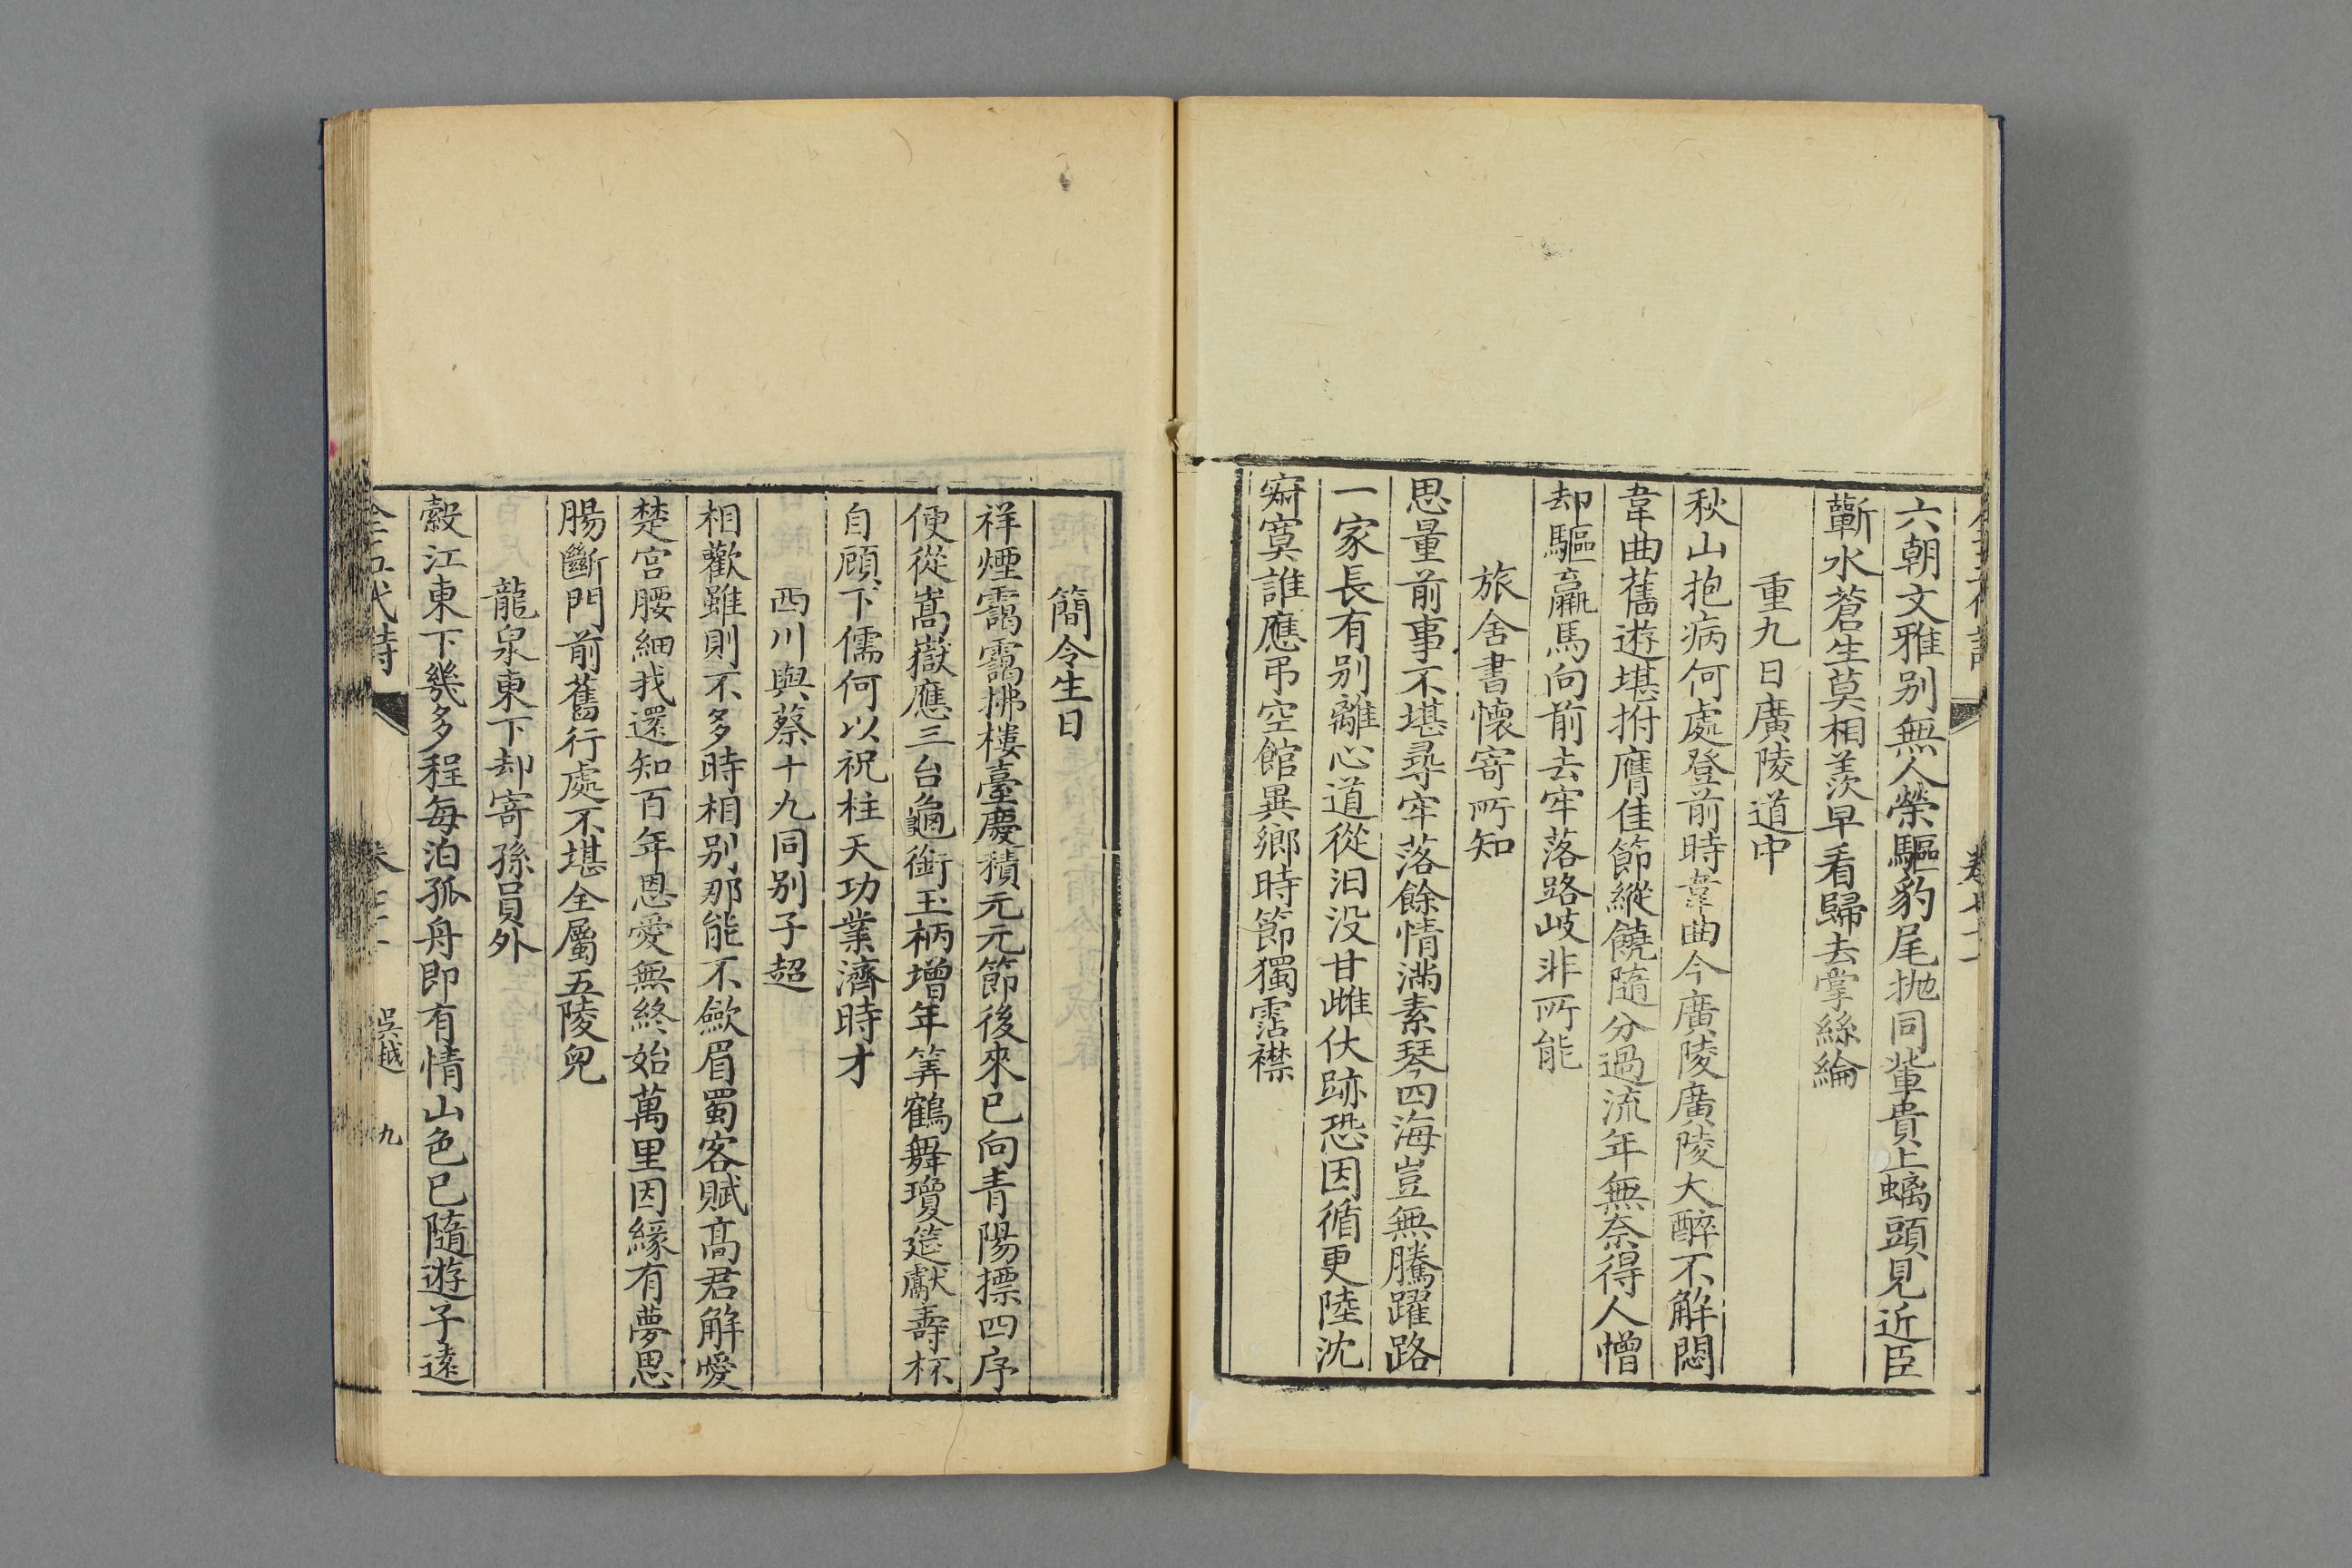 六朝文雅别無人榮驅豹尾抛同輩貴上螭頭見近臣
蘄水蒼生莫相羨早看歸去掌絲綸
重九日廣陵道中
秋山抱病何處登前時韋曲今廣陵廣陵大醉不解悶
韋曲舊遊堪拊膺佳節縱饒隨分過流年無奈得人憎
却驅羸馬向前去牢落路岐非所能
旅舍書懷寄所知
思量前事不堪尋牢落餘情滿素琴四海豈無騰躍路
一家長有别離心道從汨没甘雌伏跡恐因循更陸沈
寂寞誰應弔空館異鄉時節獨霑襟
簡令生日
祥煙靄靄拂樓臺慶積元元節後來已向青陽摽四序
便從嵩嶽應三台龜銜玉柄增年筭鶴舞瓊筵獻壽杯
自顧下儒何以祝柱天功業濟時才
西川與蔡十九同别子超
相歡雖則不多時相别那能不歛眉蜀客賦高君解愛
楚宮腰細我還知百年恩愛無終始萬里因緣有夢思
腸斷門前舊行處不堪全屬五陵兒
龍泉東下却寄孫員外
縠江東下幾多程每泊孤舟即有情山色已隨遊子遠
全五代詩
吳越
九